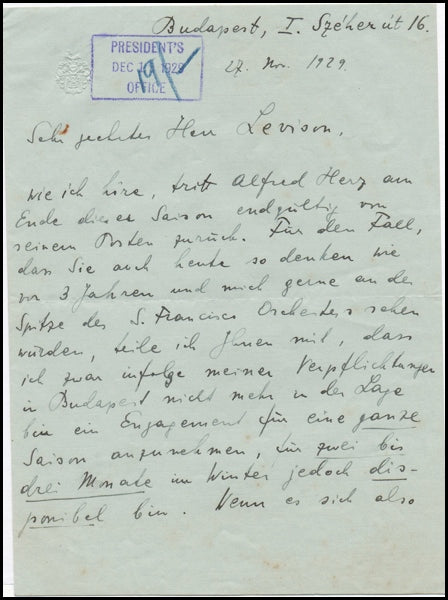 Budapest, I. Széher út 16.
PRESIDENT'S
DEC 1928
OFFICE
19/
27. Nov. 1929.
Sehr geehrter Herr Levison,
wie ich höre, tritt Alfred Herz am
Ende dieser Saison endgültig von
seinem Posten zurück. Für den Fall,
dass Sie auch heute so denken wie
vor 3 Jahren und mich gerne an der
Spitze des S. Francisco Orchesters sehen
würden, teile ich Ihnen mit, dass
ich zwar infolge meiner Verpflichtungen
in Budapest nicht mehr in der Lage
bin ein Engagement für eine ganze
Saison anzunehmen, für zwei bis
drei Monate im Winter jedoch dis-
ponibel bin. Wenn es sich also